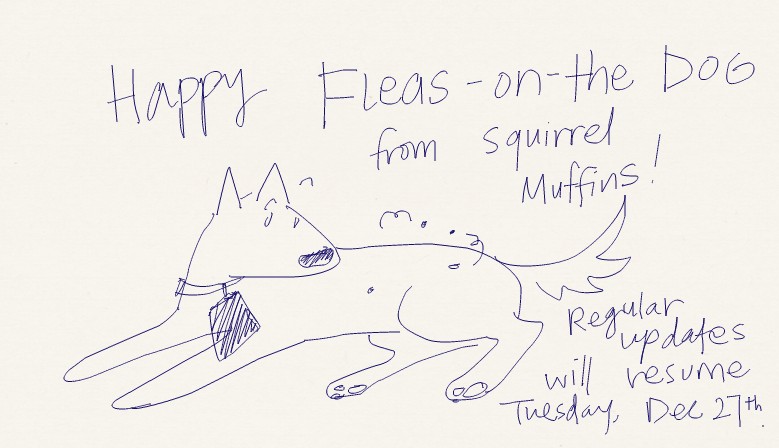 Happy Fleas-on-the DOG
from squirrel
Muffins!
Regular
updates
will resume
Tuesday, Dec 27th.